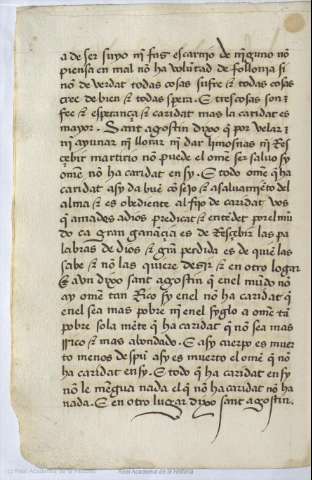 a de ser suyo nj̃ faz escarnjo de njnguno nõ
piensa en mal nõ ha volũtad de follonja si
nõ de verdat todas cosas sufre ⁊ todas cosas
cree de bien ⁊ todas spera. E tres cosas son ⁊
fee ⁊ esperança ⁊ caridat mas la caridat es
mayor. Sant agostin dixo q̃ por velar ⁊
nj̃ ayunar nj̃ llorar nj̃ dar limosnas nj̃ Res
çebir martirio nõ puede el om̃e ser salvo sy
om̃e nõ ha caridat en sy. E todo om̃e q̃ ha
caridat asy da buẽ cõsejo ⁊ a saluamjẽto del
alma ⁊ es obediente al fijo de caridat vos
q̃ amades a dios predicat ⁊ entẽdet por el mũ
do ca gran ganãçia es de Resçebir las pa
labras de dios ⁊ grãt perdida es de quiẽ las
sabe ⁊ nõ las quiere desir ⁊ en otro logar
E aun dixo sant agostin q̃ en el mũdo nõ
ay om̃e tan Rico sy en el nõ ha caridat q̃
en el sea mas pobre nj̃ en el syglo a om̃e tã
pobre sola mẽte q̃ ha caridat q̃ nõ sea mas
rrico ⁊ mas abondado. E asy cuerpo es muer
to menos de spũ asy es muerto el om̃e q̃ nõ
ha caridat en sy. E todo q̃ ha caridat en sy
nõ le mengua nada el q̃ nõ ha caridat nõ ha
nada. E en otro lugar dixo sant agostin.
(c) Real Academia de la Historia
Real Academia de la Historia